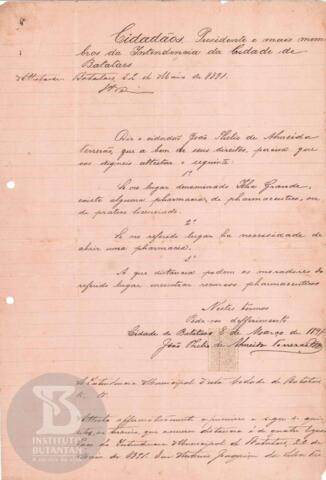 Cidadãos Presidente e mais mem
bros da Intendencia da Cidade de
Batataes
Attestado. Batataes, 22 de Maio de 1891.
Diz o cidadão João Theles de Almeida
que a bem de seus direitos, precisa que
vos digneis attestar o seguinte:
1º
Si no lugar denominado Ilha Grande,
existe alguma pharmacia, de pharmaceutico, ou
de pratico licenciado.
2º
Si no referido lugar ha necessidade de
abrir uma pharmacia.
3º
A que distancia podem os moradores do
referido lugar encontrar recursos pharmaceuticos
Nestes termos
Pede-vos defferimento
Cidade de Batataes 8 de Março de 1891
João Theles de Almeida
A Intendencia Municipal desta Cidade de Batataes
Attesta affirmativamente o primeiro e segundo
distancia é de quatro leguas
da Intendencia Municipal de Batataes, 22 de
Maio de 1891. Eu Antonio Joaquim de
B
INSTITUTO
BUTANTAN
A serviço da vida